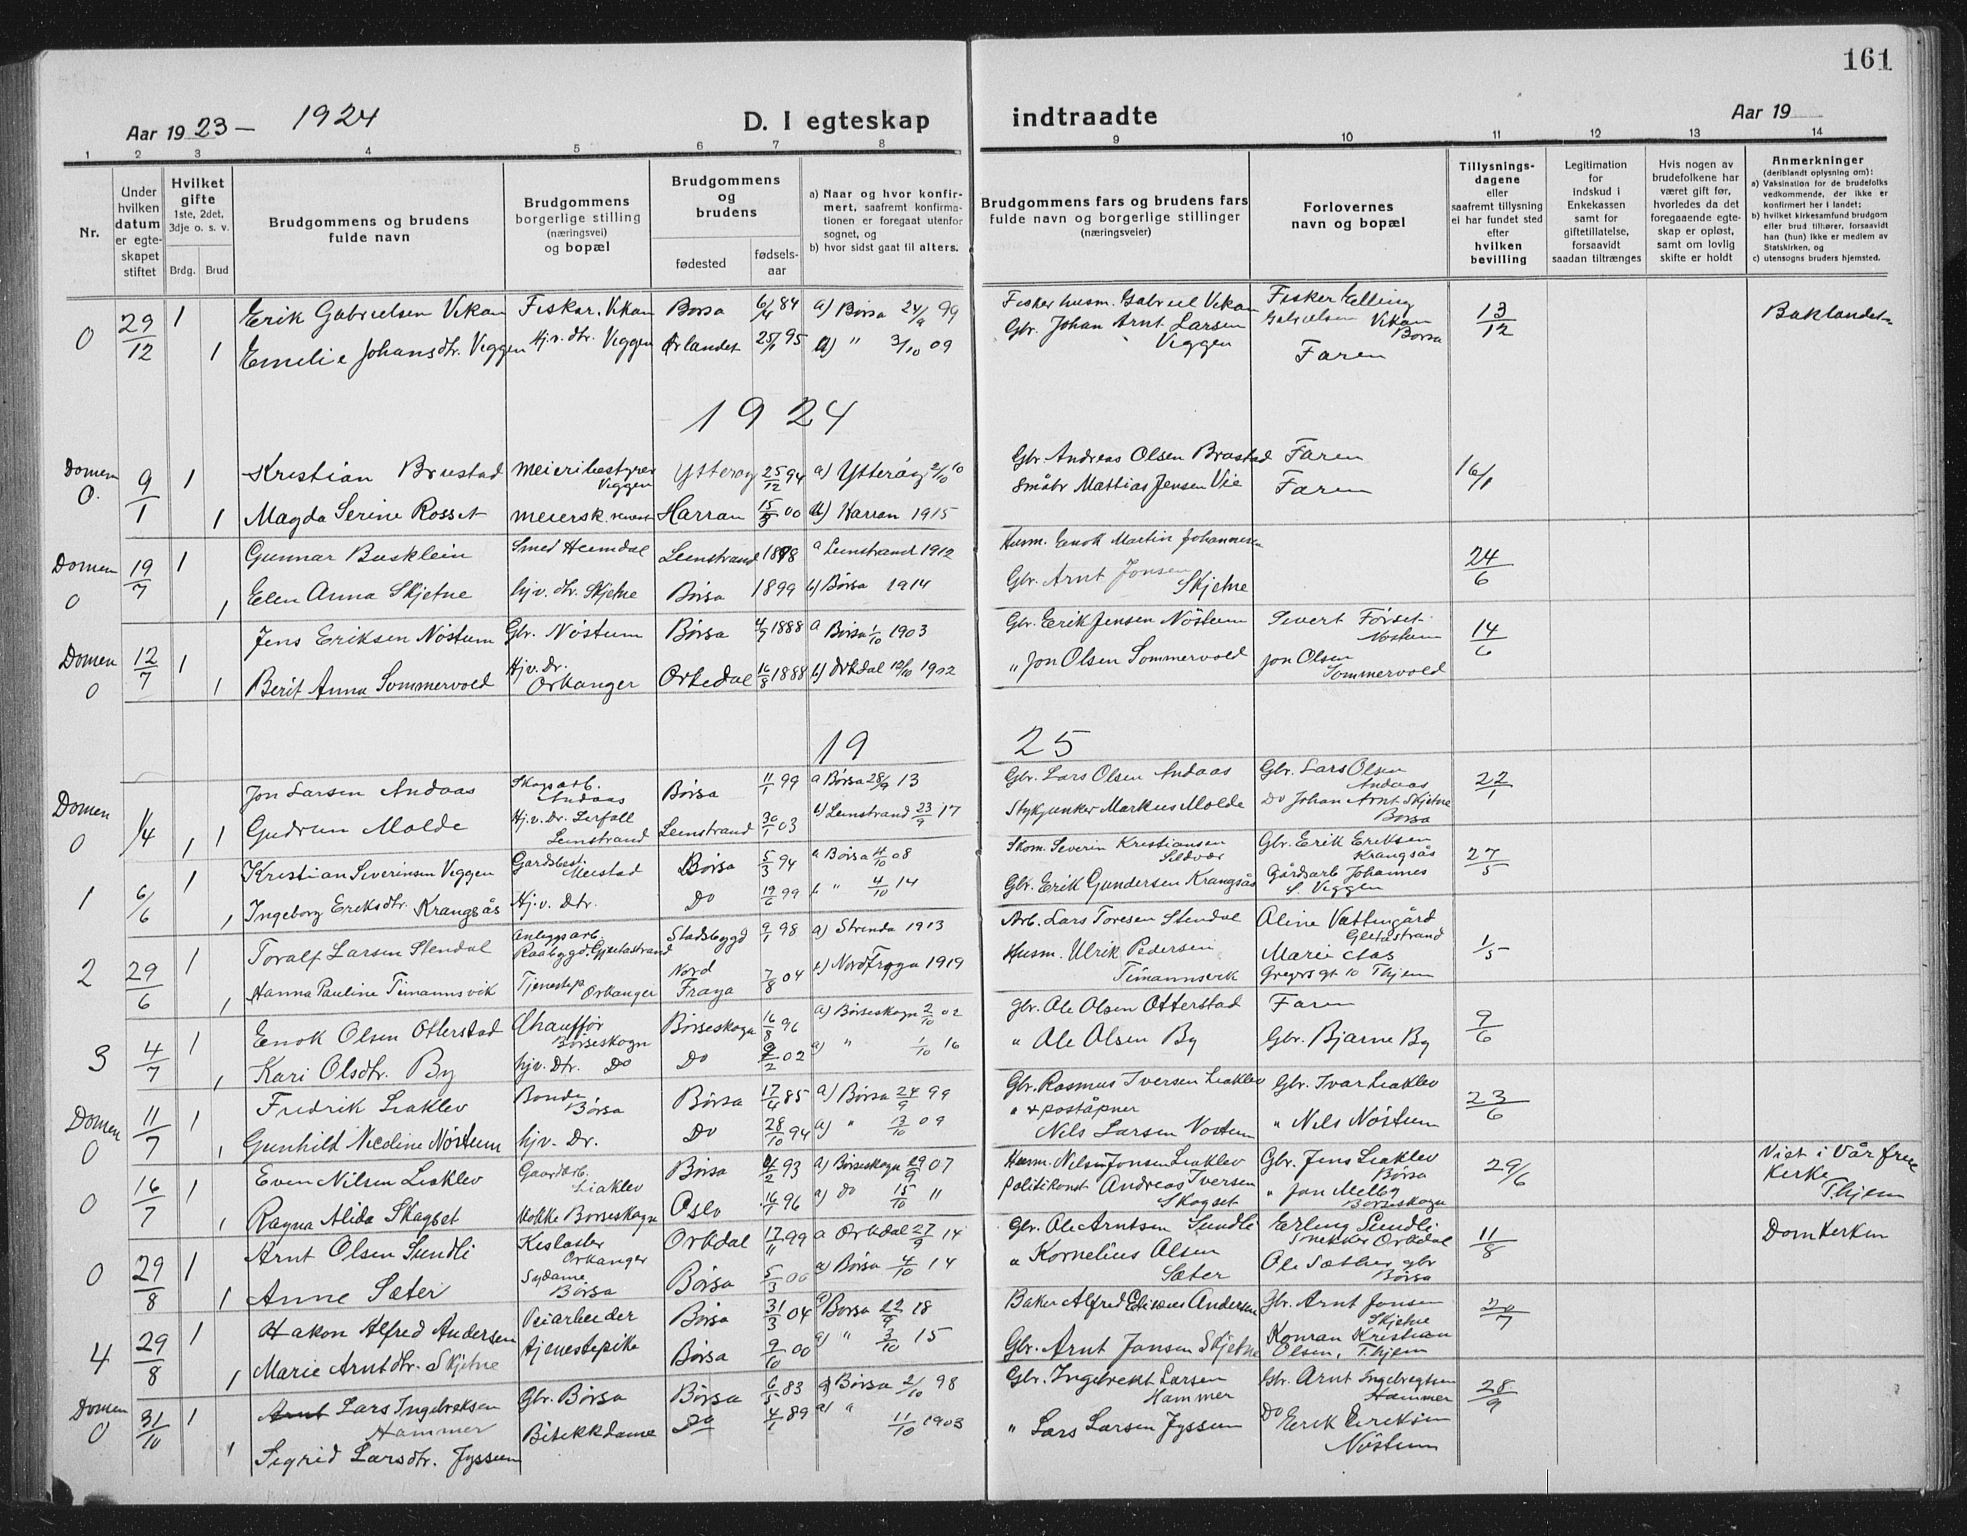 161
Aar 19 23 – 1924
D. I egteskap indtraadte
Aar 19
1 2 3 4 5 6 7 8 9 10 11 12 13 14
Nr.
Under hvilken datum er egteskapet stiftet
Hvilket gifte 1ste, 2det, 3dje o. s. v.
Brdg. Brud
Brudgommens og brudens fulde navn
Brudgommens borgerlige stilling (næringsvei) og bopæl
Brudgommens og brudens
fødested
fødselsaar
a) Naar og hvor konfirmert, saafremt konfirmationen er foregaat utenfor sognet, og
b) hvor sidst gaat til alters.
Brudgommens fars og brudens fars fulde navn og borgerlige stillinger (næringsveier)
Forlovernes navn og bopæl
Tillysningsdagene eller saafremt tillysning ei har fundet sted efter hvilken bevilling
Legitimation for indskud i Enkekassen samt for giftetillatelse, forsaavidt saadan tiltrænges
Hvis nogen av brudefolkene har været gift før, hvorledes da det foregaaende egteskap er opløst, samt om lovlig skifte er holdt
Anmerkninger (deriblandt oplysning om):
a) Vaksination for de brudefolks vedkommende, der ikke er konfirmert her i landet;
b) hvilket kirkesamfund brudgom eller brud tilhører, forsaavidt han (hun) ikke er medlem av Statskirken, og
c) utensogns bruders hjemsted.
0 29/12 1 Erik Gabrielsen Vikan Fisker, Vikan Børsa 6/4 84 a) Børsa 24/9 99 Fisker husm. Gabriel Vikan Fisker Elling Gabrielsen Vikan Børsa 13/12 Baklandet
1 Emelie Johansdtr. Viggen Hj.v. dtr. Viggen Ørlandet 25/1 95 " 3/10 09 Gbr. Johan Arnt Larsen Viggen Faren
1924
Domen 0. 9/1 1 Kristian Brustad Meieribestyrer Viggen Ytterøy 25/12 94 a) Ytterøy 2/10 10 Gbr Andreas Olsen Brustad Faren 16/1
1 Magda Serine Rosset Meiersk. Harran 15/3 00 Harran 1915 Småbr Mattias Jensen Vie Faren
Domen 0 19/7 1 Gunnar Busklein Smed Heimdal Leinstrand 1898 a Leinstrand 1912 Husm. Enok Martin Johannesen 24/6
1 Elen Anna Skjetne hjv. dtr. Skjetne Børsa 1899 b) Børsa 1914 Gbr. Arnt Jonsen Skjetne
Domen 0 12/7 1 Jens Eriksen Nøstum Gbr. Nøstum Børsa 4/9 1888 a Børsa 1/10 1903 Gbr. Erik Jensen Nøstum Sivert Førset Nøstum 14/6
1 Berit Anna Sommervold Hj.v. Dr. Orkanger Orkedal 16/8 1888 b) Orkdal 12/10 1902 " Jon Olsen Sommervold Jon Olsen Sommervold
19 25
Domen 0 1/4 1 Jon Larsen Andaas Skogsarb. Andaas Børsa 11/1 99 a Børsa 28/9 13 Gbr. Lars Olsen Andaas Gbr. Lars Olsen Andaas 22/1
1 Gudrun Molde Hj.v. Dr. Lerfall Leinstrand Leinstrand 30/1 03 b) Leinstrand 23/9 17 Stykjunker Markus Molde Do Johan Arnt Skjetne Børsa
1 6/6 1 Kristian Severinsen Viggen Gardsbest. Meistad Børsa 5/3 94 a Børsa 4/10 08 Skom. Severin Kristiansen Gbr. Erik Eriksen Krangsås 27/5
1 Ingeborg Eriksdtr. Krangsås Hj.v. Dtr. Do 19/6 99 " 4/10 14 Gbr. Erik Gundersen Krangsås Gårdsarb Johannes S. Viggen
2 29/6 1 Toralf Larsen Stendal Anleggsarb. Raabygd. Gjetastrand Stadsbygd 9/1 98 a) Strinda 1913 Arb. Lars Toresen Stendal Aline Vattengård Gjetastrand 1/5
1 Hanna Pauline Timannsvik Tjenestep. Orkanger Nord Frøya 7/8 04 b) Nord Frøya 1919 Husm. Ulrik Pedersen Timannsvik Marie Aas Gregers gt 10 Thjem
3 4/7 1 Enok Olsen Otterstad Chauffør Børseskogn Børseskogn 16/8 96 a) Børseskogn 2/10 02 Gbr. Ole Olsen Otterstad Faren 9/6
1 Kari Olsdtr. By hjv. Dtr. Do Do 9/2 02 a) " 1/10 16 " Ole Olsen By Gbr. Bjarne By
Domen 0 11/7 1 Fredrik Leaklev Bonde Børsa Børsa 17/4 85 a) Børsa 24/9 99 Gbr. Rasmus Iversen Leaklev Gbr. Ivar Leaklev 23/6
1 Gunhild Nicoline Nøstum hjv. Dr. Do 28/10 94 a) " 13/10 09 " & poståpner Nils Larsen Nøstum " Nils Nøstum
0 16/7 1 Even Nilsen Leaklev Gaardarb. Leaklev Børsa 4/2 93 a) Børseskogn 29/9 07 Husm. Nilsen Jonsen Leaklev Gbr. Jens Leaklev Børsa 29/6 Viet i Vår frue Kirke Thjem
1 Ragna Alida Skogset Kokke Børseskogn Oslo 16/1 96 a) Do 15/10 " Politikonst Andreas Iversen Skogset " Jon Melby Børseskogn
0 29/8 1 Arnt Olsen Sundli Kislaster Orkanger Orkdal 17/11 99 a Orkdal 27/9 14 Gbr. Ole Arntsen Sundli Erling Sundli Snekker Orkdal 11/8 Domkirken
1 Anne Sæter Sydame Børsa Børsa 5/3 00 a) Børsa 4/10 14 " Kornelius Olsen Sæter Ole Sæther gbr Børsa
4 29/8 1 Hakon Alfred Andersen Veiarbeider Børsa 31/3 04 a) Børsa 22/9 18 Baker Alfred Andersen Gbr. Arnt Jonsen Skjetne 20/7
1 Marie Arntdtr. Skjetne tjenestepike Børsa 9/10 00 a) " 3/10 15 Gbr. Arnt Jonsen Skjetne Konran Kristian Olsen, Thjem
Domen 0 31/10 1 Arnt Lars Ingebrektsen Hammer Gbr. Børsa Børsa 6/5 83 a) Børsa 2/10 98 Gbr. Ingebrekt Larsen Hammer Gbr. Arnt Ingebregtsen Hammer 28/9
1 Sigrid Larsdtr. Jyssum Butikkdame Do 4/1 89 a) " 11/10 1903 " Lars Larsen Jyssum Do Erik Eriksen Nøstum